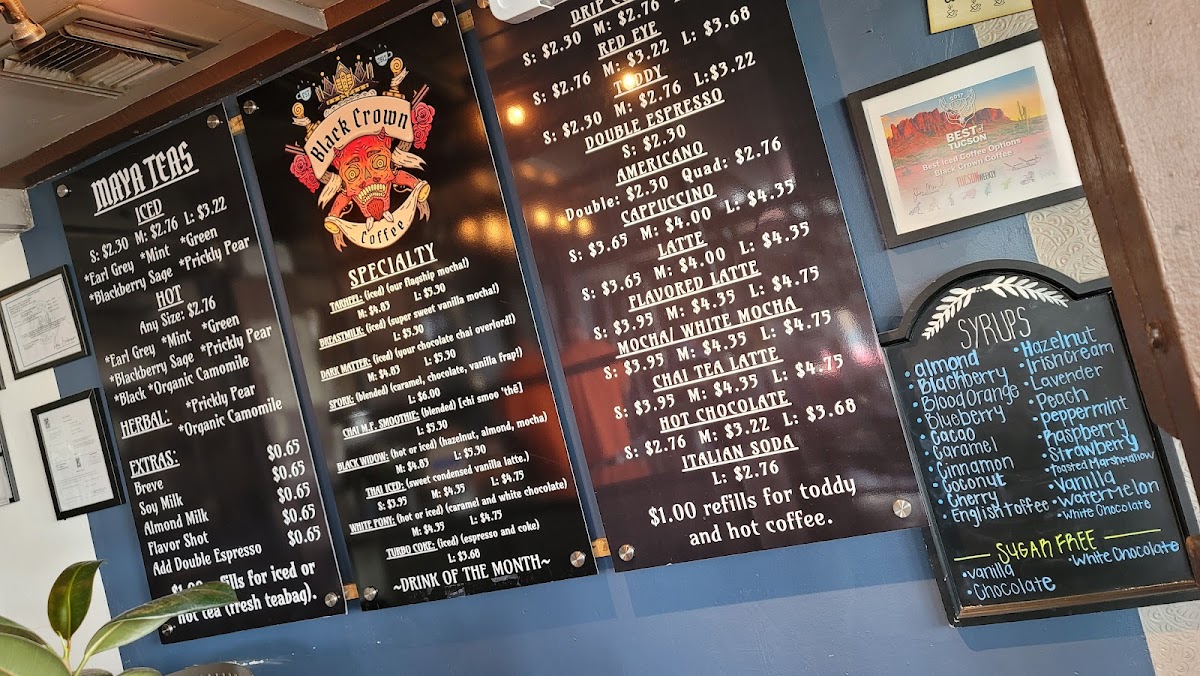 MAYA TEAS
ICED
S: $2.30 M: $2.76 L: $3.22
*Earl Grey *Mint *Green
*Blackberry Sage *Prickly Pear
HOT
Any Size: $2.76
*Earl Grey *Mint *Green
*Blackberry Sage *Prickly Pear
*Black *Organic Camomile
HERBAL: *Prickly Pear
*Organic Camomile
EXTRAS:
Breve $0.65
Soy Milk $0.65
Almond Milk $0.65
Flavor Shot $0.65
Add Double Espresso $0.65
refills for iced or
hot tea (fresh teabag).
Black Crown
Coffee
SPECIALTY
TARHEEL: (iced) (our flagship mocha!)
M: $4.85 L: $5.30
BREASTMILK: (iced) (super sweet vanilla mocha!)
L: $5.30
DARK MATTER: (iced) (your chocolate chai overlord!)
M: $4.85 L: $5.30
SPORK: (blended) (caramel, chocolate, vanilla frap!)
L: $6.00
CHAI M.F. SMOOTHIE: (blended) [chi smoo 'thē]
L: $5.30
BLACK WIDOW: (hot or iced) (hazelnut, almond, mocha)
M: $4.85 L: $5.30
THAI ICED: (sweet condensed vanilla latte.)
S: $3.95 M: $4.35 L: $4.75
WHITE PONY: (hot or iced) (caramel and white chocolate)
M: $4.35 L: $4.75
TURBO COKE: (iced) (espresso and coke)
L: $3.68
~DRINK OF THE MONTH~
DRIP
S: $2.30 M: $2.76
RED EYE
S: $2.76 M: $3.22 L: $3.68
TODDY
S: $2.30 M: $2.76 L:$3.22
DOUBLE ESPRESSO
S: $2.30
AMERICANO
Double: $2.30 Quad: $2.76
CAPPUCCINO
S: $3.65 M: $4.00 L: $4.35
LATTE
S: $3.65 M: $4.00 L: $4.35
FLAVORED LATTE
S: $3.95 M: $4.35 L: $4.75
MOCHA/ WHITE MOCHA
S: $3.95 M: $4.35 L: $4.75
CHAI TEA LATTE
S: $3.95 M: $4.35 L: $4.75
HOT CHOCOLATE
S: $2.76 M: $3.22 L: $3.68
ITALIAN SODA
L: $2.76
$1.00 refills for toddy
and hot coffee.
2017
BEST of
TUCSON
Best Iced Coffee Options
Black Crown Coffee
TUCSON WEEKLY
SYRUPS
• almond
• Blackberry
• Blood Orange
• Blueberry
• Cacao
• Caramel
• Cinnamon
• Coconut
• Cherry
• English toffee
• Hazelnut
• Irish Cream
• Lavender
• Peach
• peppermint
• Raspberry
• Strawberry
• Toasted Marshmallow
• Vanilla
• watermelon
• White Chocolate
SUGAR FREE
• vanilla
• Chocolate
• White Chocolate